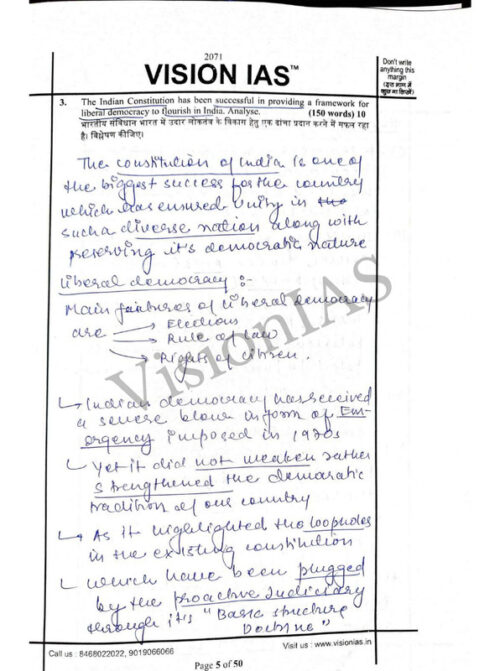 2071
VISION IAS™
Don't write
anything this
margin
(इस भाग में
कुछ ना लिखें)
3. The Indian Constitution has been successful in providing a framework for
liberal democracy to flourish in India. Analyse. (150 words) 10
भारतीय संविधान भारत में उदार लोकतंत्र के विकास हेतु एक ढांचा प्रदान करने में सफल रहा
है। विश्लेषण कीजिए।
The constitution of India is one of
the biggest success for the country
which has ensured unity in the
such a diverse nation along with
preserving it's democratic nature
liberal democracy :-
Main features of liberal democracy
are → Elections
→ Rule of law
→ Rights of citizen.
↳ Indian democracy has received
a severe blow in form of Em-
ergency imposed in 1970s
↳ Yet it did not weaken rather
strengthened the demoratic
tradition of our country
↳ As it highlighted the loopholes
in the existing constitution
↳ which have been plugged
by the proactive Judiciary
through it's "Basic structure
Doctrine"
VisionIAS
Call us : 8468022022, 9019066066
Visit us : www.visionias.in
Page 5 of 50